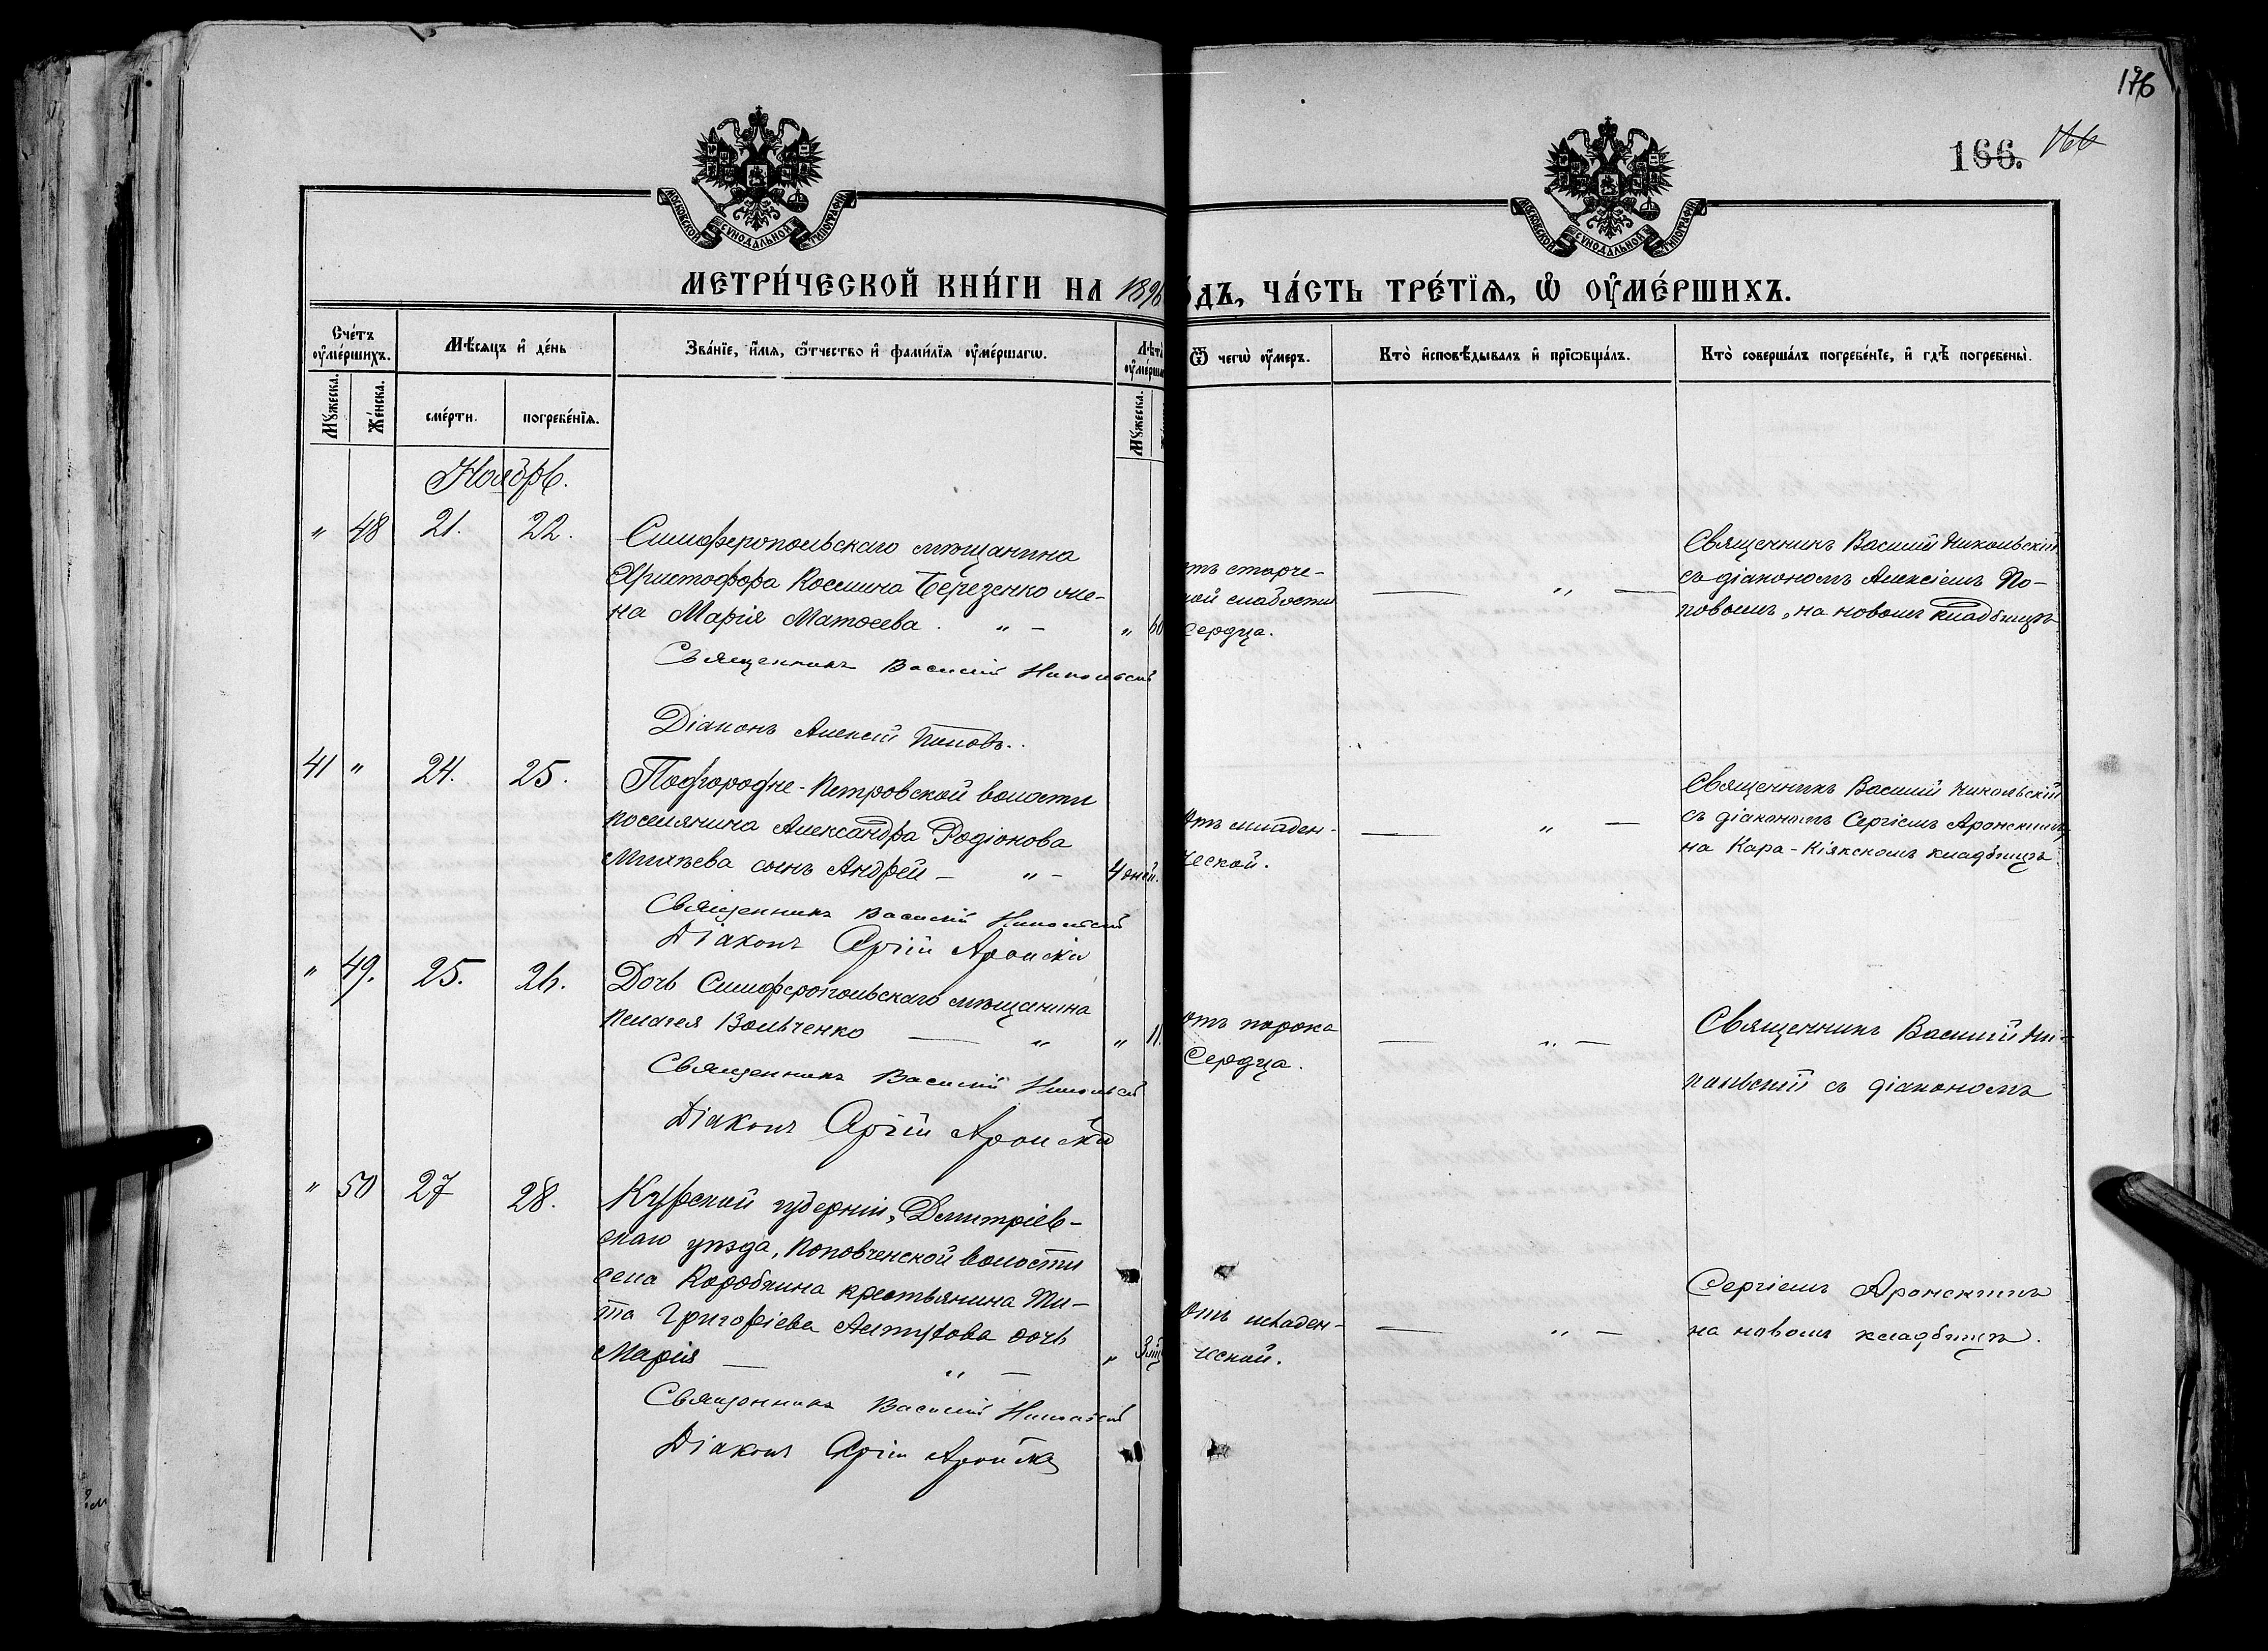 176
166. 166
МОСКОВСКОЙ СУНОДАЛЬНОЙ ТИПОГРАФІИ
МОСКОВСКОЙ СУНОДАЛЬНОЙ ТИПОГРАФІИ
МЕТРИ́ЧЕСКОЙ КНИ́ГИ НА 1896
ДЪ, ЧА́СТЬ ТРЕ́ТЇѦ, Ѡ ОУ҆МЕ́РШИХЪ.
Сче́тъ оу҆ме́ршихъ.
Мꙋ́жеска.
Же́нска.
Мѣ́сяцъ и҆ де́нь
сме́рти.
погребе́нїѧ.
Зва́нїе, и҆́мѧ, ѻ҆́тчество и҆ фами́лїѧ оу҆ме́ршагѡ.
Лѣта̀ оу҆ме́рша
Мꙋ́жеска.
Ѿ чегѡ̀ оу҆́меръ.
Кто̀ и҆сповѣ́дывалъ и҆ прїѡбща́лъ.
Кто̀ соверша́лъ погребе́нїе, и҆ гдѣ̀ погребены̀.
Ноябрь.
" 48 21. 22.
Симферопольскаго мѣщанина
Христофора Космина Березенко же-
на Марія Матѳеева. " — " 60
Священникъ Василій Никольскій
Діаконъ Алексій Поповъ.
отъ старче-
ной слабости
сердца.
— " —
Священникъ Василій Никольскій
съ діакономъ Алексіемъ По-
повымъ, на новомъ кладбищѣ
41 " 24. 25.
Подгородне-Петровской волости
поселянина Александра Родіонова
Михѣева сынъ Андрей — " — 4 дней.
Священникъ Василій Никольскій
Діаконъ Сергій Аронскій
Отъ младен-
ческой.
— " —
Священникъ Василій Никольскій
съ діакономъ Сергіемъ Аронскимъ,
на Кара-Кіякскомъ кладбищѣ.
" 49. 25. 26.
Дочь Симферопольскаго мѣщанина
Пелагея Вольченко — " " 11.
Священникъ Василій Никольскій
Діаконъ Сергій Аронскій
отъ порока
сердца.
— " —
Священникъ Василій Ни-
кольскій съ діакономъ
" 50 27 28.
Курской губерніи, Дмитріев-
скаго уѣзда, Поповченской волости
села Коробкина крестьянина Ти-
та Григорьева дочь
Марія — " — "
Священникъ Василій Никольскій
Діаконъ Сергій Аронскій
Отъ младен-
ческой.
— " —
Сергіемъ Аронскимъ
на новомъ кладбищѣ.